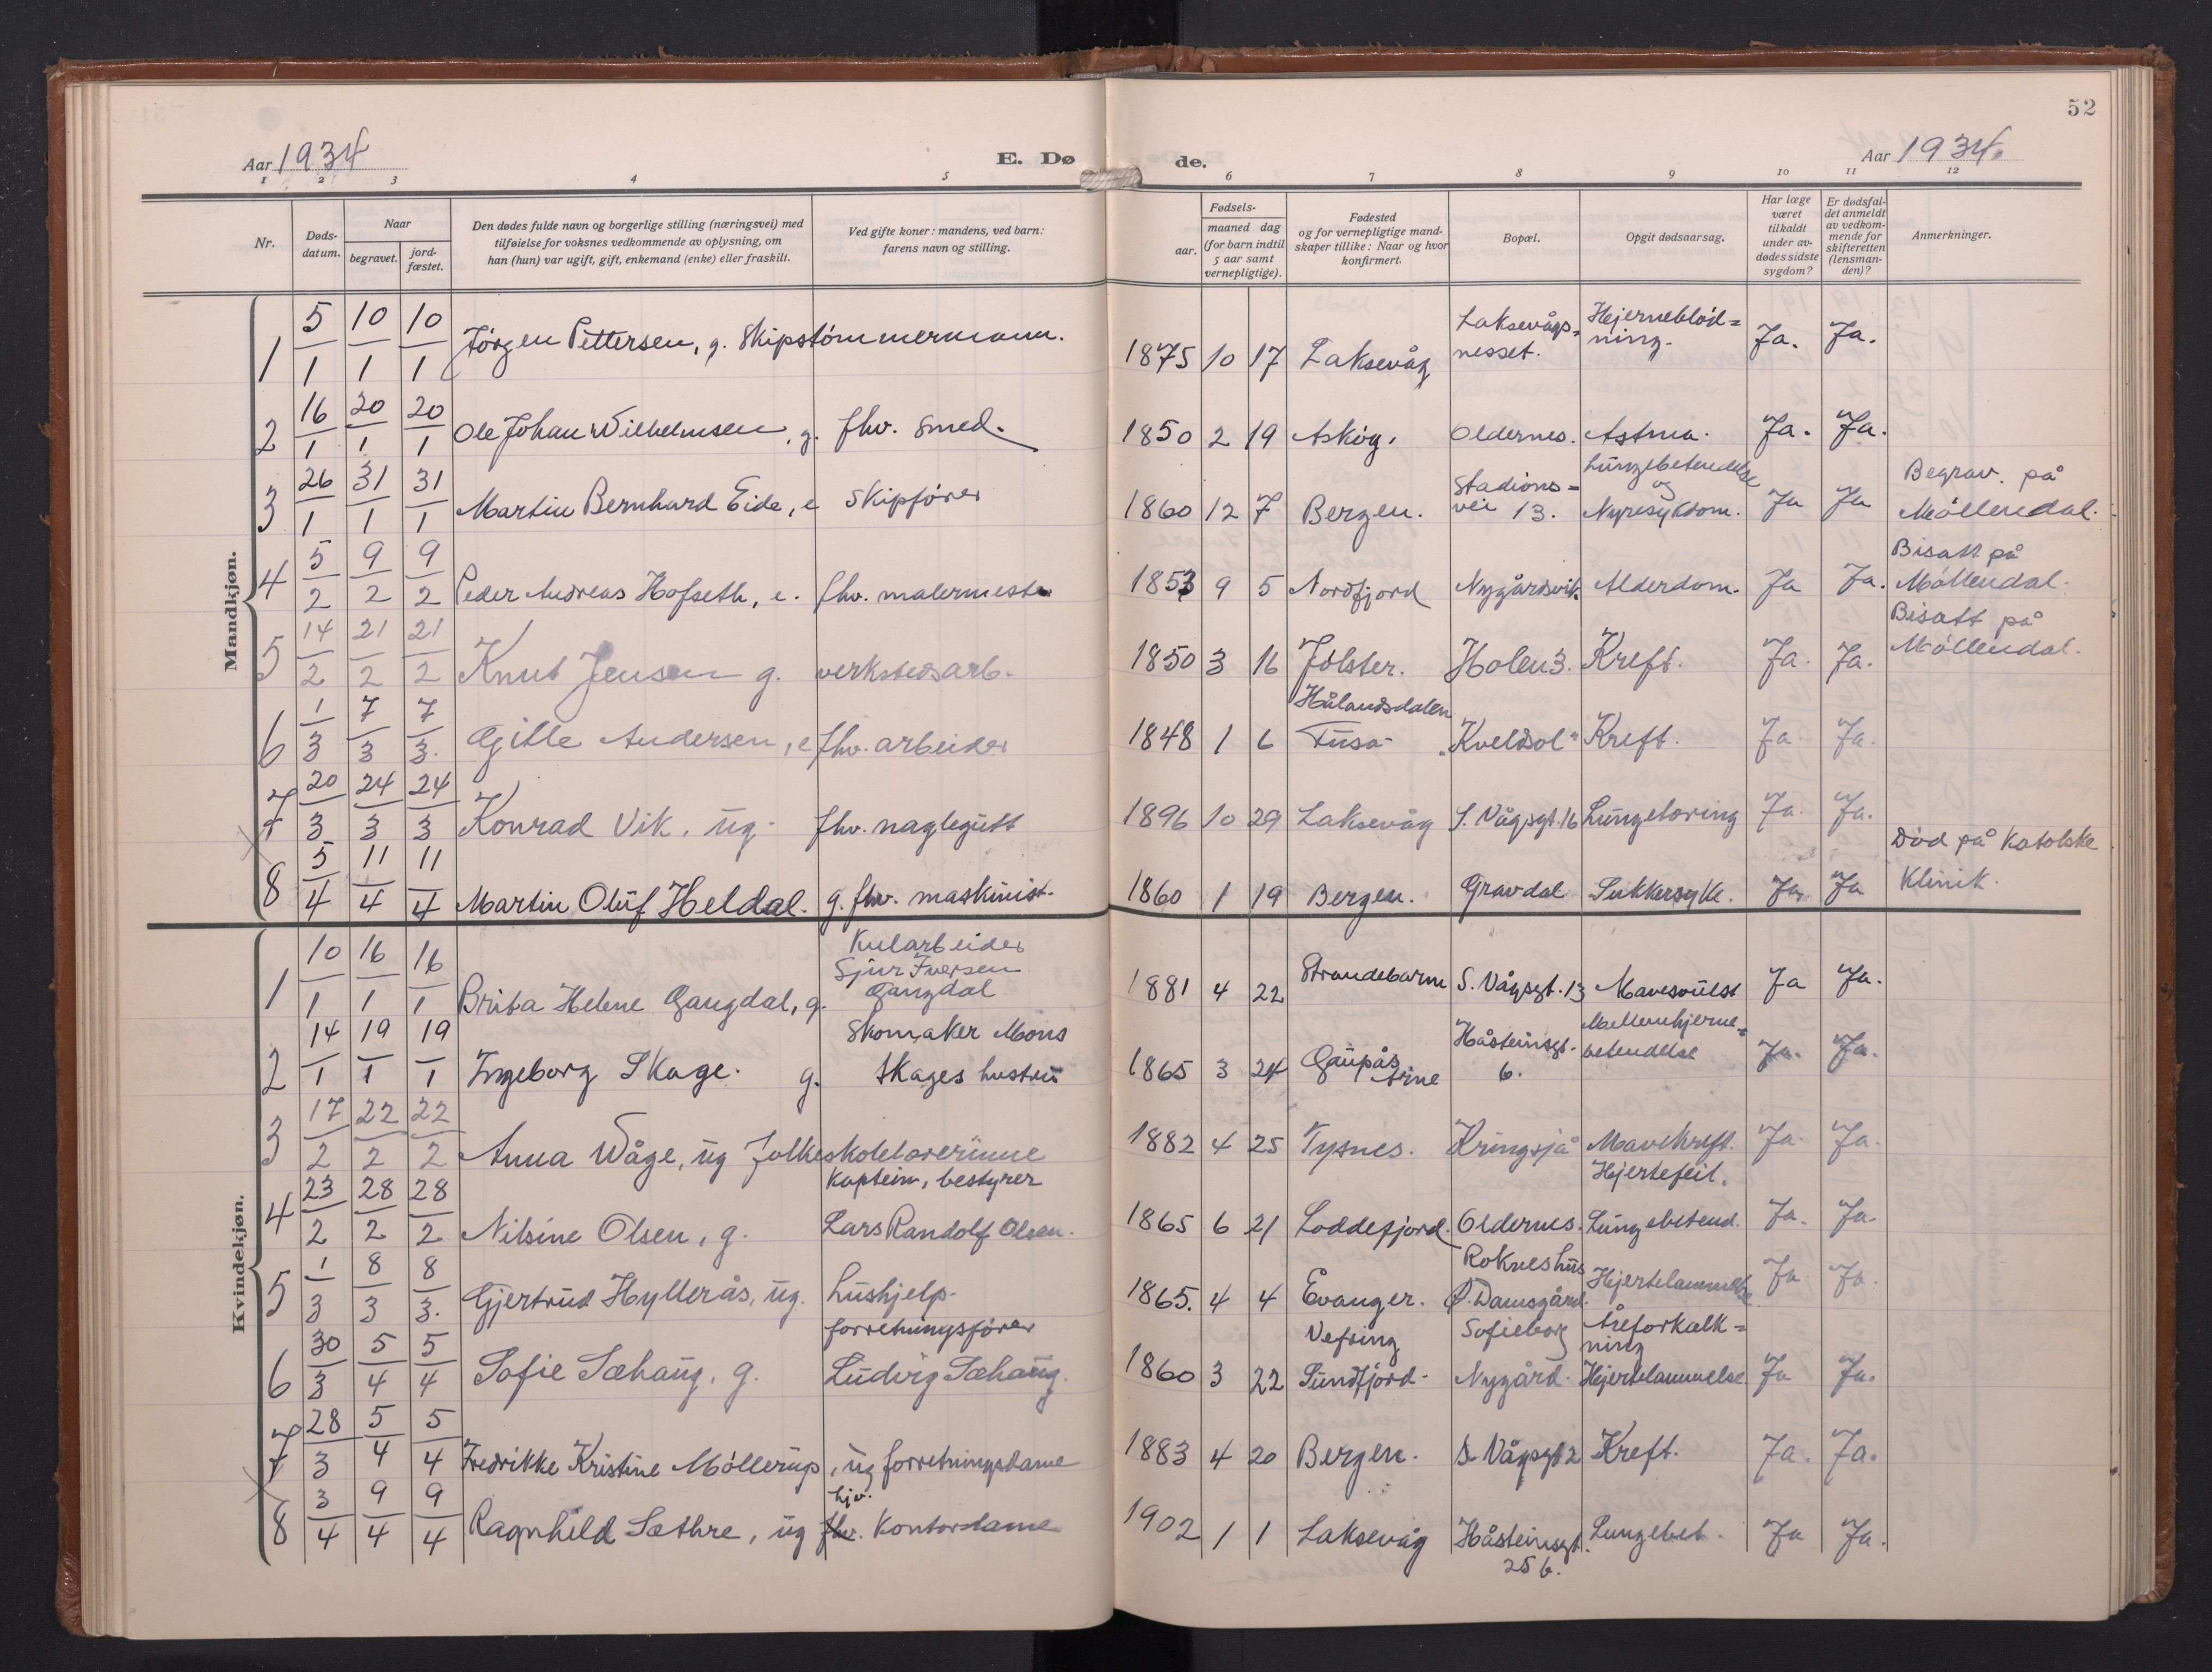 52
Aar 1934 E. Dø de. Aar 1934.
1 2 3 4 5 6 7 8 9 10 11 12
Nr.
Døds-
datum.
Naar
begravet.
jord-
fæstet.
Den dødes fulde navn og borgerlige stilling (næringsvei) med
tilføielse for voksnes vedkommende av oplysning, om
han (hun) var ugift, gift, enkemand (enke) eller fraskilt.
Ved gifte koner: mandens, ved barn:
farens navn og stilling.
Fødsels-
aar.
maaned dag
(for barn indtil
5 aar samt
vernepligtige).
Fødested
og for vernepligtige mand-
skaper tillike: Naar og hvor
konfirmert.
Bopæl.
Opgit dødsaarsag.
Har læge
været
tilkaldt
under av-
dødes sidste
sygdom?
Er dødsfal-
det anmeldt
av vedkom-
mende for
skifteretten
(lensman-
den)?
Anmerkninger.
Mandkjøn.
1 5/1 10/1 10/1 Jörgen Pettersen, g. Skipstömmermann. 1875 10 17 Laksevåg Laksevågs= nesset. Hjerneblöd= ning. Ja. Ja.
2 16/1 20/1 20/1 Ole Johan Wilhelmsen, g. fhv. smed. 1850 2 19 Asköy. Oldernes. Astma. Ja. Ja.
3 26/1 31/1 31/1 Martin Bernhard Eide, e Skipförer 1860 12 7 Bergen. Stadions= vei 13. Lungebetendelse og Nyresykdom. Ja Ja Begrav. på Möllendal.
4 5/2 9/2 9/2 Peder Andreas Hofseth, e. fhv. malermester 1853 9 5 Nordfjord Nygårdsvik. Alderdom. Ja Ja. Bisatt på Möllendal.
5 14/2 21/2 21/2 Knut Jensen g. verkstedsarb. 1850 3 16 Jölster. Holen 3. Kreft. Ja. Ja. Bisatt på Möllendal.
6 1/3 7/3 7/3. Gitle Andersen, e fhv. arbeider 1848 1 6 Hålandsdalen Fusa "Kveldsol" Kreft. Ja. Ja.
7 20/3 24/3 24/3 Konrad Vik, ug. fhv. naglegutt 1896 10 29 Laksevåg S. Vågsgt. 16 Lungetæring Ja. Ja.
8 5/4 11/4 11/4 Martin Oluf Heldal. g. fhv. maskinist. 1860 1 19 Bergen. Gravdal Sukkersyke. Ja. Ja Död på Katolske Klinik.
Kvindekjøn.
1 10/1 16/1 16/1 Brita Helene Gangdal, g. Kularbeider Sjur Iversen Gangdal 1881 4 22 Strandebarm S. Vågsgt. 13 Mavesvulst Ja Ja.
2 14/1 19/1 19/1 Ingeborg Skage. g. Skomaker Mons Skages hustru 1865 3 24 Gaupås Arne Håsteinsgt. 6. Mellemhjerne= betendelse Ja. Ja.
3 17/2 22/2 22/2 Anna Wåge, ug Folkeskolelærerinne 1882 4 25 Tysnes. Kringsjå Mavekreft. Ja. Ja.
4 23/2 28/2 28/2 Nilsine Olsen, g. Kaptein, bestyrer Lars Randolf Olsen. 1865 6 21 Loddefjord. Oldernes. Hjertefeil. Lungebetend. Ja. Ja.
5 1/3 8/3 8/3. Gjertrud Hyllerås, ug. hushjelp. 1865. 4 4 Evanger. Rokneshus Ø. Damsgård. Hjertelammelse Ja. Ja.
6 30/3 5/4 5/4 Sofie Sæhaug, g. forretningsförer Ludvig Sæhaug. 1860 3 22 Vefring Sundfjord. Sofieborg Nygård. Åreforkalk= ning Hjertelammelse Ja Ja.
7 28/3 5/4 5/4 Fredrikke Kristine Möllerup, ug forretningsdame 1883 4 20 Bergen. S. Vågsgt 2 Kreft. Ja. Ja.
8 3/4 9/4 9/4 Ragnhild Sæthre, ug hjv. fhv. Kontordame 1902 1 1 Laksevåg Håsteinsgt. 25 b. Lungebet. Ja Ja.